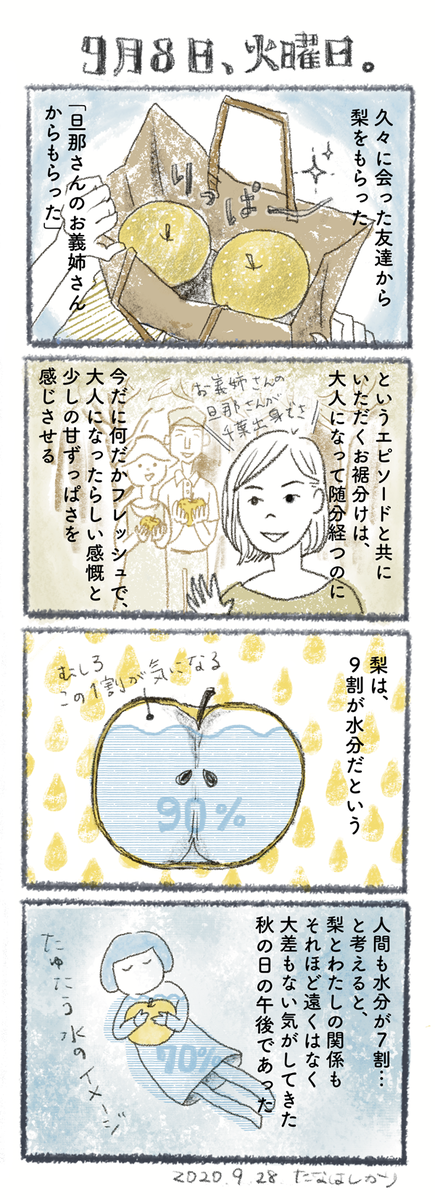 9月8日、火曜日。
久々に会った友達から
梨をもらった
りっぱー
「旦那さんのお義姉さん
からもらった」
というエピソードと共に
いただくお裾分けは、
大人になって随分経つのに
お義姉さんの
旦那さんが
千葉出身でさ
今だに何だかフレッシュで、
大人になったらしい感慨と
少しの甘ずっぱさを
感じさせる
梨は、
9割が水分だという
むしろ
この1割が気になる
90%
人間も水分が7割…
と考えると、
梨とわたしの関係も
それほど遠くはなく
大差もない気がしてきた
秋の日の午後であった
たゆたう水のイメージ
70%
2020.9.28 たなはしかつ